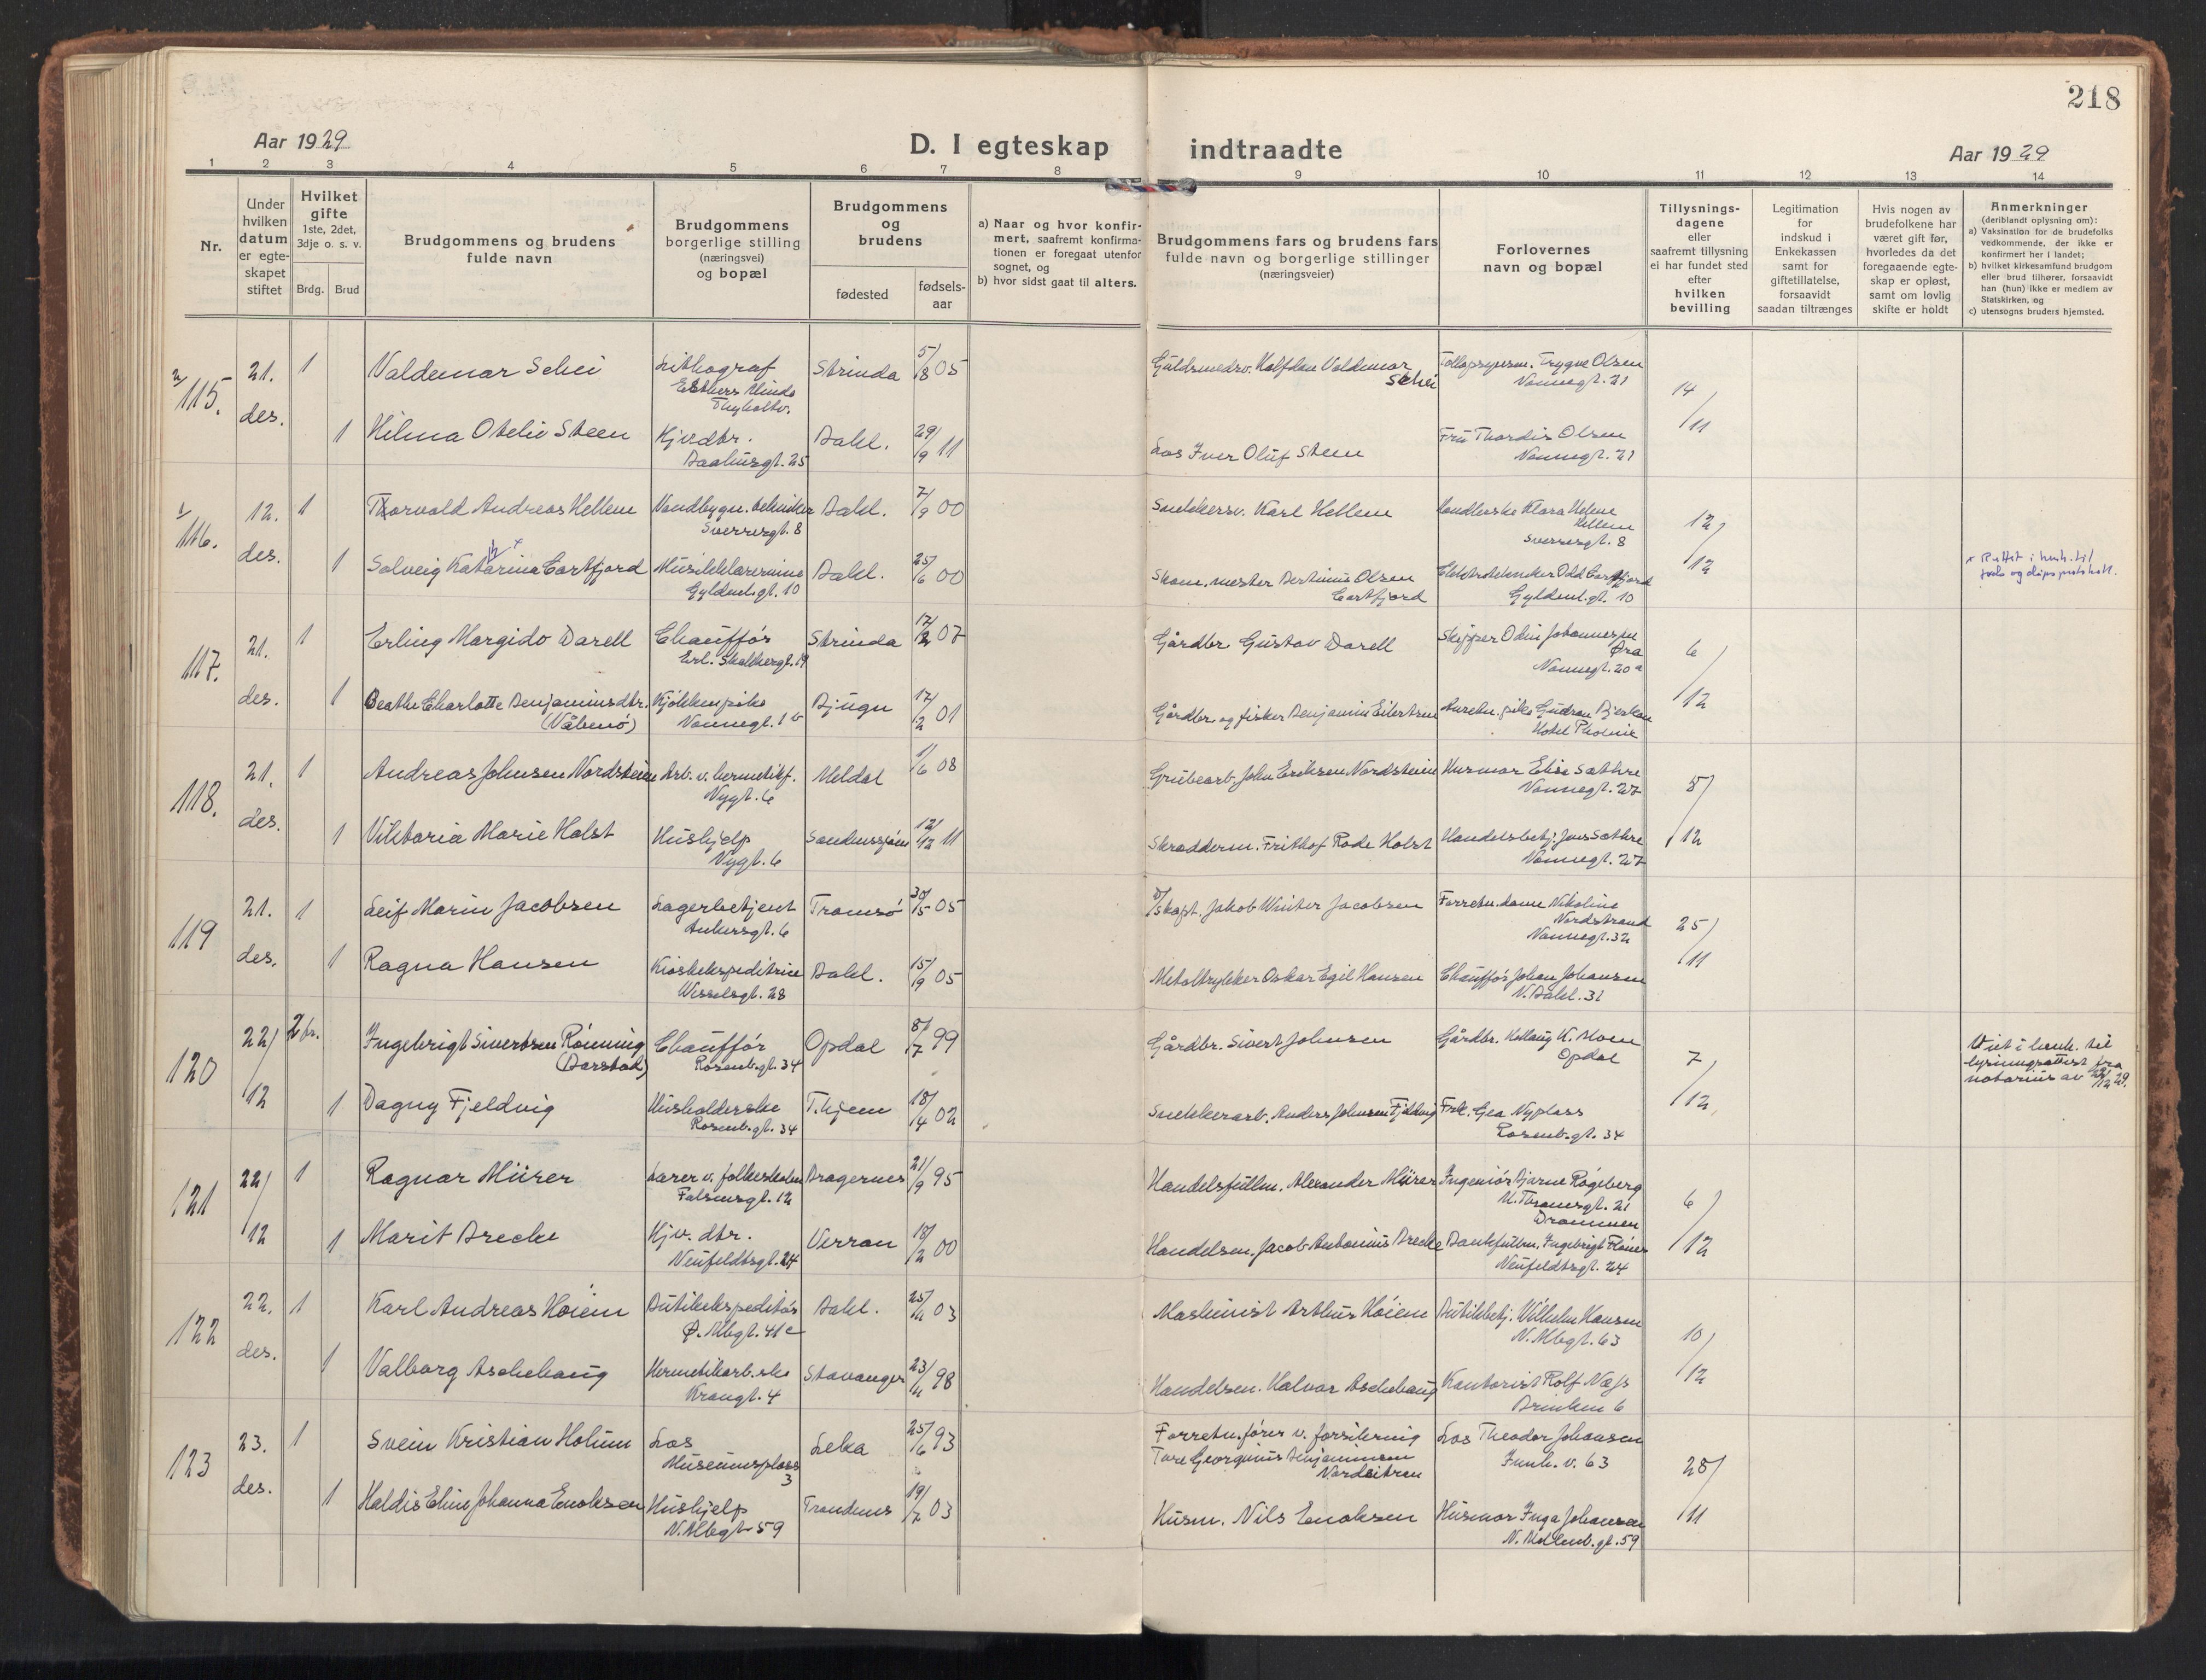 218
Aar 1929
D. I egteskap indtraadte
Aar 1929
1 2 3 4 5 6 7 8 9 10 11 12 13 14
Nr.
Under hvilken datum er egteskapet stiftet
Hvilket gifte
1ste, 2det, 3dje o. s. v.
Brdg. Brud
Brudgommens og brudens fulde navn
Brudgommens borgerlige stilling (næringsvei) og bopæl
Brudgommens og brudens
fødested
fødselsaar
a) Naar og hvor konfirmert, saafremt konfirmationen er foregaat utenfor sognet, og
b) hvor sidst gaat til alters.
Brudgommens fars og brudens fars fulde navn og borgerlige stillinger (næringsveier)
Forlovernes navn og bopæl
Tillysningsdagene eller saafremt tillysning ei har fundet sted efter hvilken bevilling
Legitimation for indskud i Enkekassen samt for giftetillatelse, forsaavidt saadan tiltrænges
Hvis nogen av brudefolkene har været gift før, hvorledes da det foregaaende egteskap er opløst, samt om lovlig skifte er holdt
Anmerkninger
(deriblandt oplysning om):
a) Vaksination for de brudefolks vedkommende, der ikke er konfirmert her i landet;
b) hvilket kirkesamfund brudgom eller brud tilhører, forsaavidt han (hun) ikke er medlem av Statskirken, og
c) utensogns bruders hjemsted.
115. 21. des. 1 Valdemar Schei Lithograf Strinda 5/8 05
Thyholtv.
Guldsmedsv. Halfdan Valdemar Schei
Trygve Olsen
Nonnegt. 21
14/11
1 Hilma Otelie Steen Kjvdtr. Bakl. 29/9 11
Los Iver Oluf Steen
Fru Thordis Olsen
Nonnegt. 21
116. 12. des. 1 Thorvald Andreas Hellem Bakl. 7/9 00
Sverresgt. 8
Snekkersv. Karl Hellem
Klara Helene Hellem
Sverresgt. 8
12/12
1 Solveig Katarina Cartfjord Musikklærerinne Bakl. 25/6 00
Gyldenl.gt. 10
Skom.mester Bertinus Olsen Cartfjord
Elektrotekniker Odd Cartfjord
Gyldenl.gt. 10
117. 21. des. 1 Erling Margido Darell Chauffør Strinda 17/2 07
Erl. Skakkesgt. 19
Gårdbr. Gustav Darell
Skipper Odin Johannesen Øra
Nonnegt. 20a
6/12
1 Beathe Charlotte Benjaminsdtr. (Våbenø) Kjøkkenpike Bjugn 17/2 01
Nonnegt. 1b
Gårdbr. og fisker Benjamin Eilertsen
Gudrun
Hotel Phønix
118. 21. des. 1 Andreas Johnsen Nordstein Arb. v. hermetikf. Meldal 1/6 08
Nygt. 6
Grubearb. John Eriksen Nordstein
Husmor Elise Sæthre
Nonnegt. 27
5/12
1 Viktoria Marie Holst Hushjelp Sandnessjøen 12/12 11
Nygt. 6
Skredderm. Frithof Rode Holst
Handelsbetj. Jens Sæthre
Nonnegt. 27
119 21. des. 1 Leif Marin Jacobsen Lagerbetjent Tromsø 30/5 05
Ankersgt. 6
D/skapt. Jakob Winter Jacobsen
Forretn.dame Nikoline Nordstrand
Nonnegt. 32
25/11
1 Ragna Hansen Kioskekspeditrice Bakl. 15/9 05
Wesselsgt. 28
Metaltrykker Oskar Egil Hansen
Chauffør Johan Johansen
N. Bakl. 31
120 22/12 2 fr. Ingebrigt Sivertsen Rønning (Aarstad) Chauffør Opdal 8/7 99
Rosenb.gt. 34
Gårdbr. Sivert Johnsen
Gårdbr. K. Moen
Opdal
7/12
Viet i henh. til lysningsattest fra notarius av 22/12 29.
1 Dagny Fjeldvig Husholderske T.hjem 18/4 02
Rosenb.gt. 34
Snekkerarb. Anders Johnsen Fjeldvig
Frk. Gea Nyplass
Rosenb.gt. 34
121 22/12 1 Ragnar Mürer Lærer v. folkeskolen Bragernes 21/9 95
Falsensgt. 12
Handelsfullm. Alexander Mürer
Ingeniør Bjarne Røgeberg
Drammen
6/12
1 Marit Brecke Kjv. dtr. Verran 18/2 00
Neufeldtsgt. 24
Handelsm. Jacob Antonius Brecke
Bankfullm. Ingebrigt
Neufeldtsgt. 24
122 22. des. 1 Karl Andreas Høiem Butikekspeditør Bakl. 25/11 03
Ø. Mbgt. 41c
Maskinist Arthur Høiem
Butikkbetj. Wilhelm Hansen
N. Mbgt. 63
10/12
1 Valborg Aschehaug Hermetikarb.ske Stavanger 23/11 98
Krangt. 4
Handelsm. Halvor Aschehaug
Kontorist Rolf Næss
Brinken 6
123 23. des. 1 Svein Kristian Holum Los Leka 25/6 93
Museumsplass 3
Forretn.fører v. forsikring
Tore Georginus Benjaminsen
Los Theodor Johansen
63
28/11
1 Haldis Elin Johanna Enoksen Hushjelp Trondenes 19/7 03
N. Mbgt. 59
Husm. Nils Enoksen
Husmor Inga Johansen
N. Møllenb.gt. 59
x Rettet i henh. til føds og dåpsprotokoll.